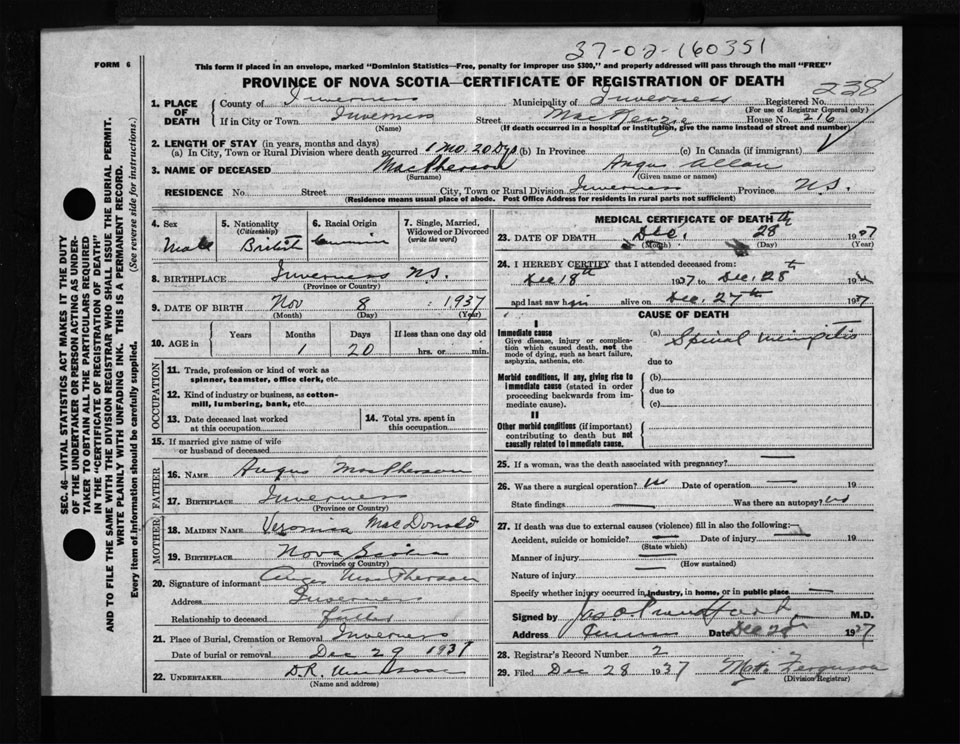 37-02-160351
FORM 6
This form if placed in an envelope, marked "Dominion Statistics—Free, penalty for improper use $300," and properly addressed will pass through the mail "FREE"
PROVINCE OF NOVA SCOTIA—CERTIFICATE OF REGISTRATION OF DEATH
238
1. PLACE OF DEATH
County of Inverness Municipality of Inverness Registered No.
(For use of Registrar General only)
If in City or Town Inverness Street MacKenzie House No. 216
(Name) (If death occurred in a hospital or institution, give the name instead of street and number)
2. LENGTH OF STAY (in years, months and days)
(a) In City, Town or Rural Division where death occurred 1 Mo. 20 Dys. (b) In Province (c) In Canada (if immigrant)
3. NAME OF DECEASED MacPherson Angus Allan
(Surname) (Given name or names)
RESIDENCE No. Street City, Town or Rural Division Inverness Province N.S.
(Residence means usual place of abode. Post Office Address for residents in rural parts not sufficient)
4. Sex
Male
5. Nationality
(Citizenship)
British
6. Racial Origin
7. Single, Married, Widowed or Divorced
(write the word)
8. BIRTHPLACE Inverness N.S.
(Province or Country)
9. DATE OF BIRTH Nov 8 1937
(Month) (Day) (Year)
10. AGE in
Years Months Days If less than one day old
1 20 hrs. or min.
OCCUPATION
11. Trade, profession or kind of work as spinner, teamster, office clerk, etc.
12. Kind of industry or business, as cotton-mill, lumbering, bank, etc.
13. Date deceased last worked at this occupation
14. Total yrs. spent in this occupation
15. If married give name of wife or husband of deceased
FATHER
16. Name Angus MacPherson
17. Birthplace Inverness
(Province or Country)
MOTHER
18. Maiden Name Veronica MacDonald
19. Birthplace Nova Scotia
(Province or Country)
20. Signature of informant Angus MacPherson
Address Inverness
Relationship to deceased Father
21. Place of Burial, Cremation or Removal Inverness
Date of burial or removal Dec 29 1937
22. UNDERTAKER D.R.
(Name and address)
MEDICAL CERTIFICATE OF DEATH
23. DATE OF DEATH Dec. 28th 1937
(Month) (Day) (Year)
24. I HEREBY CERTIFY that I attended deceased from:
Dec 18th 1937 to Dec. 28th 19
and last saw him alive on Dec. 27th 1937
CAUSE OF DEATH
I
Immediate cause
Give disease, injury or complication which caused death, not the mode of dying, such as heart failure, asphyxia, asthenia, etc.
(a) Spinal
due to
Morbid conditions, if any, giving rise to immediate cause (stated in order proceeding backwards from immediate cause).
(b)
due to
(c)
II
Other morbid conditions (if important) contributing to death but not causally related to immediate cause.
25. If a woman, was the death associated with pregnancy?
26. Was there a surgical operation? Date of operation 19
State findings Was there an autopsy? no
27. If death was due to external causes (violence) fill in also the following:
Accident, suicide or homicide? Date of injury 19
(State which)
Manner of injury
(How sustained)
Nature of injury
Specify whether injury occurred in industry, in home, or in public place
Signed by M.D.
Address Date Dec 28th 1937
28. Registrar's Record Number 2
29. Filed Dec 28 1937 Ferguson
(Division Registrar)
SEC. 46—VITAL STATISTICS ACT MAKES IT THE DUTY
OF THE UNDERTAKER OR PERSON ACTING AS UNDER-
TAKER TO OBTAIN ALL THE PARTICULARS REQUIRED
IN THE "CERTIFICATE OF REGISTRATION OF DEATH"
AND TO FILE THE SAME WITH THE DIVISION REGISTRAR WHO SHALL ISSUE THE BURIAL PERMIT.
WRITE PLAINLY WITH UNFADING INK. THIS IS A PERMANENT RECORD.
Every item of information should be carefully supplied. (See reverse side for instructions.)